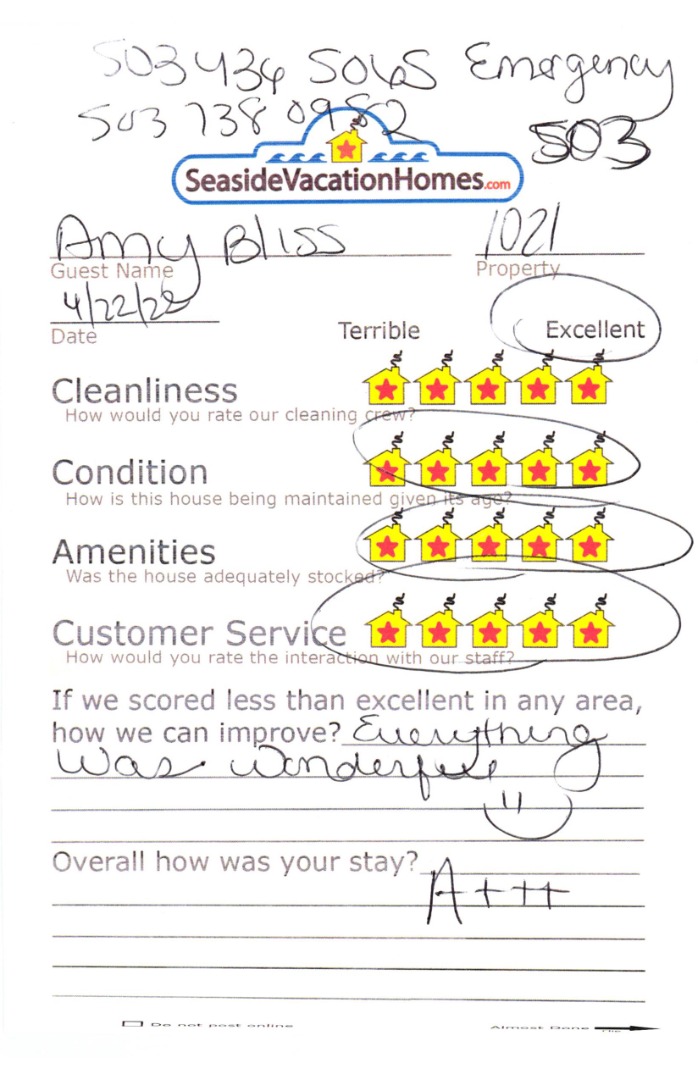 503 436 5065 Emergency
503 738 0952
503
SeasideVacationHomes.com
Amy Bliss 1021
Guest Name Property
4/22/22
Date Terrible Excellent
Cleanliness
How would you rate our cleaning crew?
Condition
How is this house being maintained given its age?
Amenities
Was the house adequately stocked?
Customer Service
How would you rate the interaction with our staff?
If we scored less than excellent in any area,
how we can improve? Everything
was wonderful
Overall how was your stay?
A+++
Do not post online Almost Done